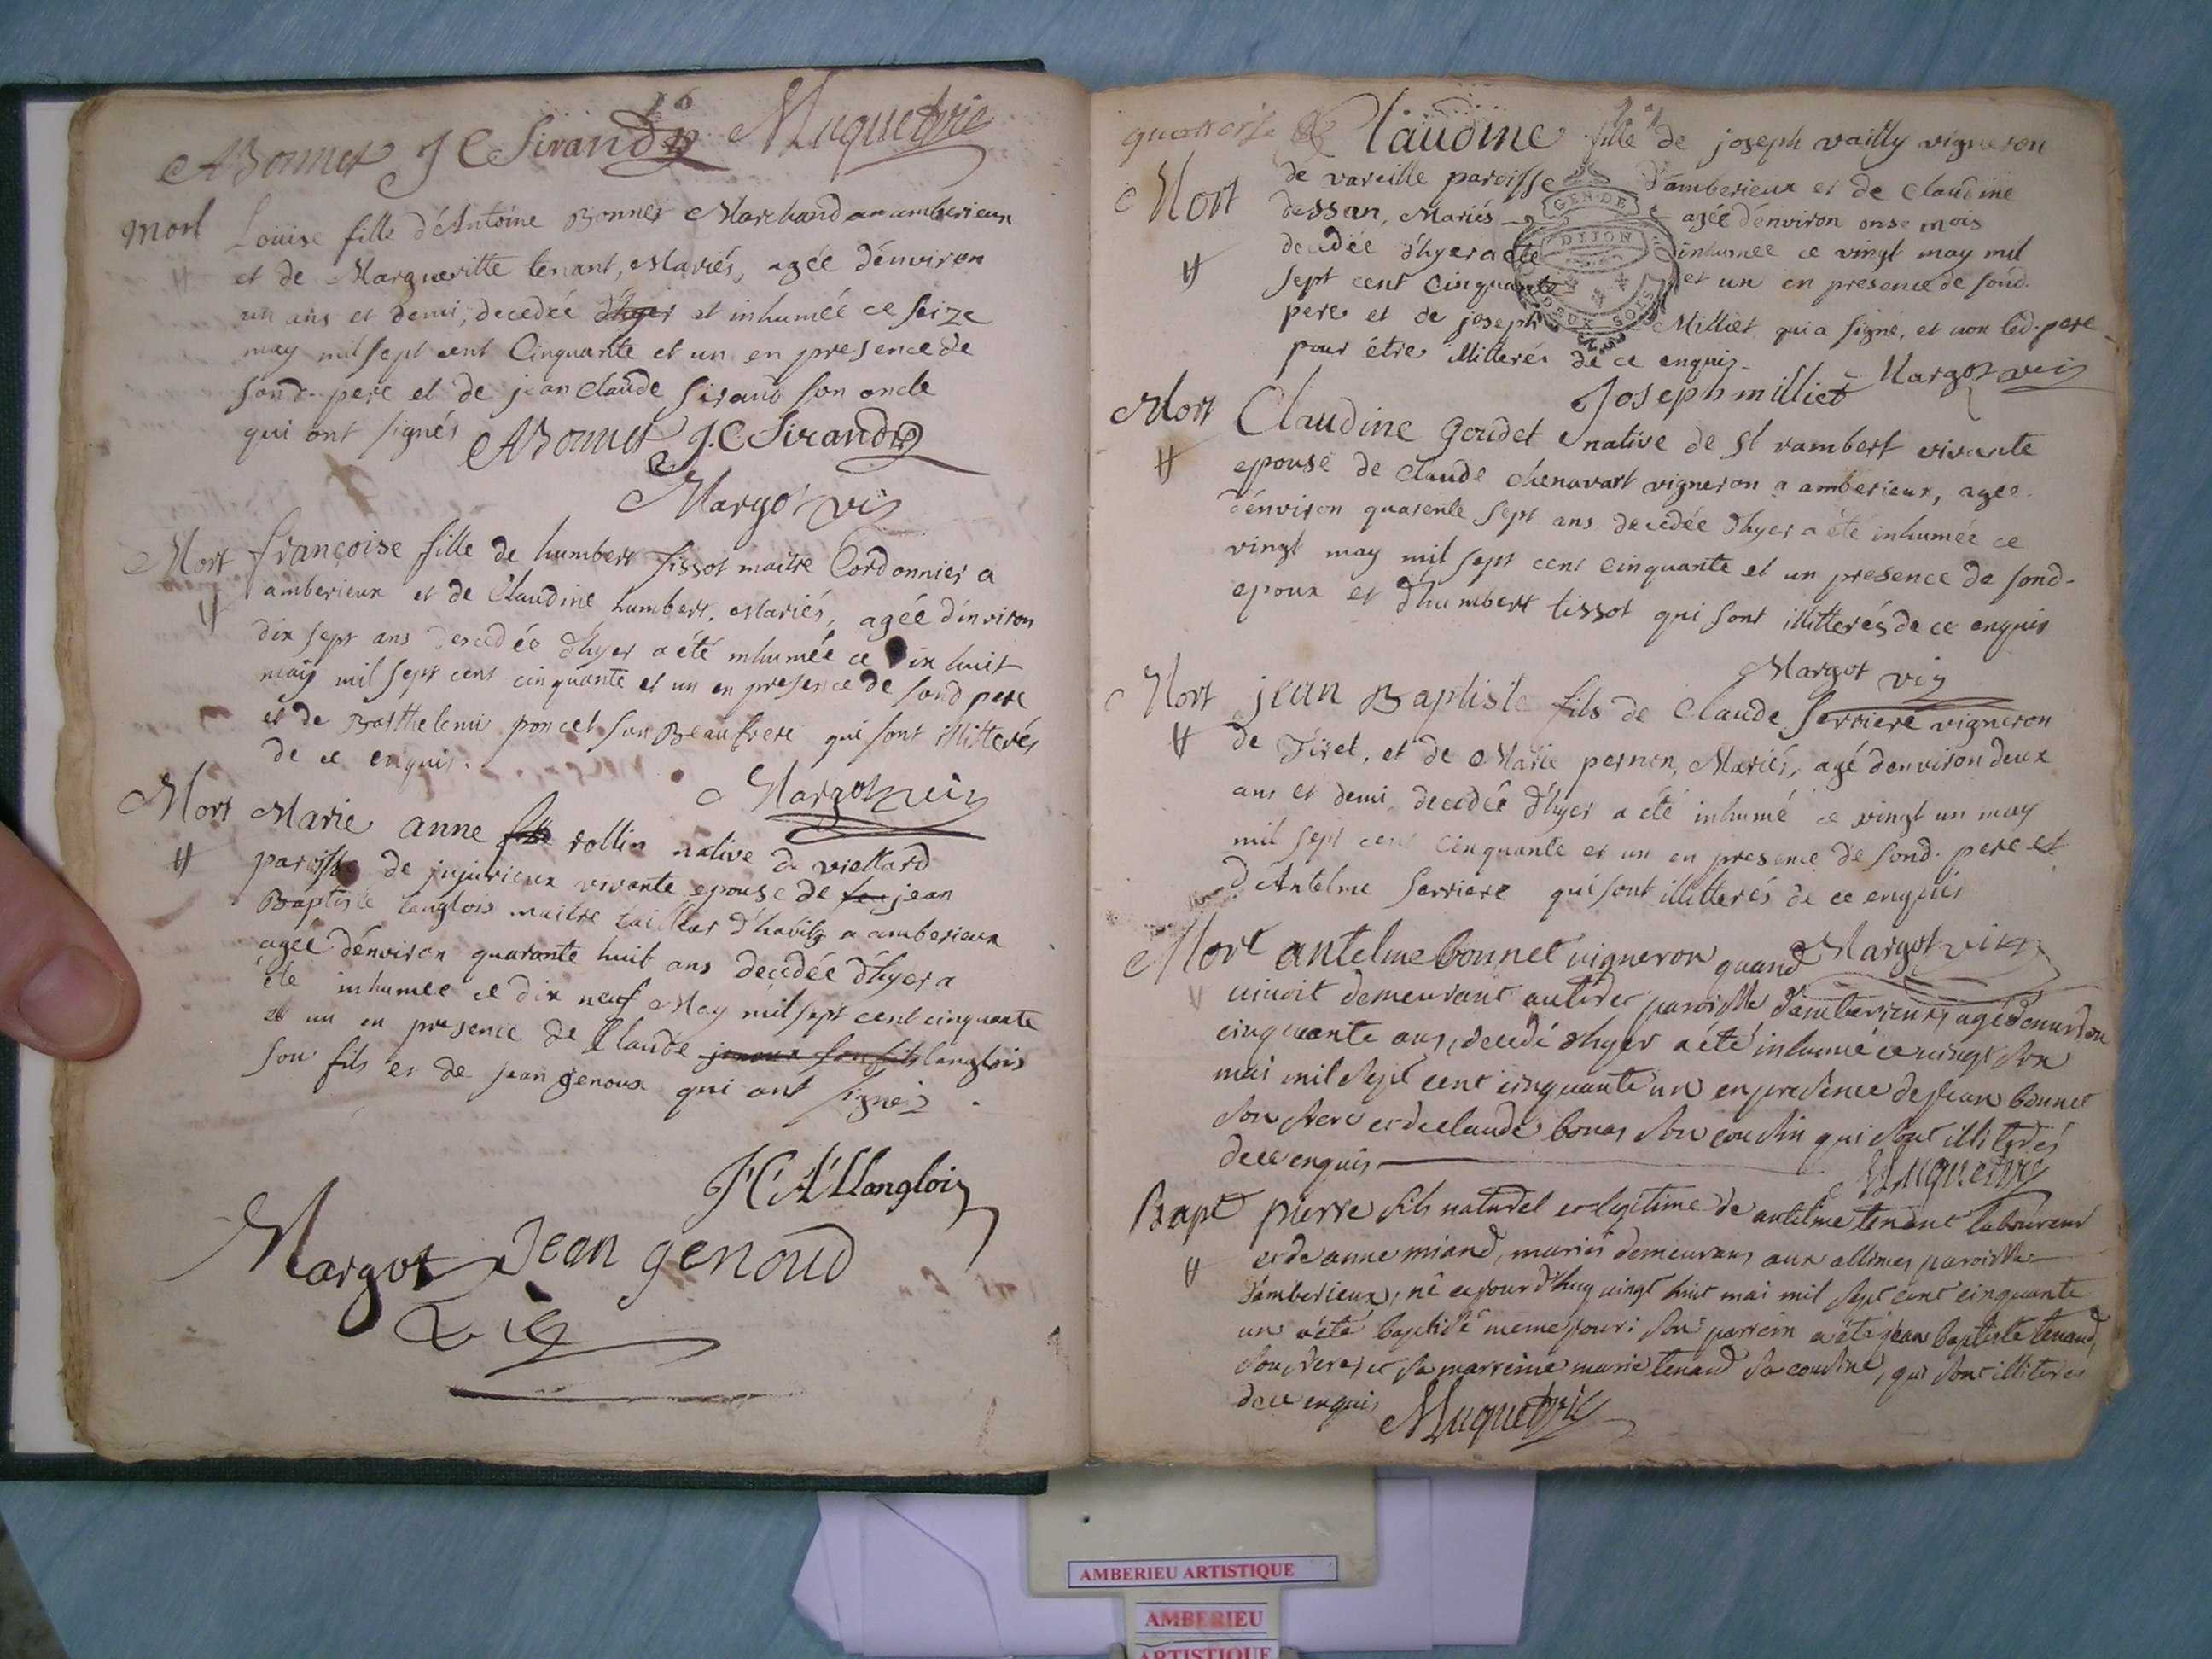 ABonnet J C Sirand Muquet vic
mort
Louise fille d'Antoine Bonnet Marchand an amberieux
et de Margueritte tenant, Mariés, agée d'environ
un ans et demi, decedée d'hyer et inhumée ce seize
may mil sept cent Cinquante et un en presence de
sond. pere et de jean Claude sirand son oncle
qui ont signés ABonnet J.C Sirand
Margot vic
Mort françoise fille de humbert tissot maitre Cordonnier a
amberieux et de Claudine humbert, Mariés, agée d'environ
dix sept ans decedée d'hyer a été inhumée ce dix huit
may mil sept cent cinquante et un en presence de sond pere
et de Barthelemi poncet son Beaufrere qui sont illitterés
de ce enquis.
Margot vic
Mort Marie anne fille rollin native de viellard
paroisse de jujurieux vivante epouse de feu jean
Baptiste langlois maitre tailleur d'habitz a amberieux
agée d'environ quarante huit ans decedée d'hyer a
été inhumée ce dix neuf May mil sept cent cinquante
et un en presence de Claude langlois
son fils et de jean genoux qui ont signez.
Llanglois
Margot Jean genoud
vic
Claudine fille de joseph vailly vigneron
de vareille paroisse d'amberieux et de Claudine
Mort dessan, Mariés agée d'environ onse mois
decedée d'hyer a été inhumée ce vingt may mil
sept cent Cinquante et un en presence de sond.
pere et de joseph Milliet qui a signé, et non led. pere
pour être illitterés de ce enquis
Joseph milliet Margot vic
Mort Claudine goudet native de St rambert vivante
epouse de Claude chenavart vigneron a amberieux, agée
d'environ quarente sept ans decedée d'hyer a été inhumée ce
vingt may mil sept cent cinquante et un presence de sond-
epoux et d'humbert tissot qui sont illitterés de ce enquis
Margot vic
Mort jean Baptiste fils de Claude serriere vigneron
de Tiret, et de Marie pernon, Mariés, agé d'environ deux
ans et demi decedée d'hyer a été inhumé ce vingt un may
mil sept cent Cinquante et un en presence de sond. pere et
d'Antelme serriere qui sont illitterés de ce enquis
Margot vic
Mort antelme bonnet vigneron quand
vivoit demeurant au tiret paroisse d'amberieux, agé d'environ
cinquante ans, decedé d'hyer a été inhumé ce vingt six
mai mil sept cent cinquante un en presence de jean bonnet
son frere et de claude bonas son cousin qui sont illiterés
de ce enquis
Muquet vic
Bapt pierre fils naturel et legitime de antelme tenant laboureur
et de anne miand, mariés demeurans aux allimes paroisse
d'amberieux, né cejourd'huy vingt huit mai mil sept cent cinquante
un a été baptisé meme jour: son parrein a été jean baptiste tenand,
son frere, et sa marreine marie tenand sa cousine, qui sont illiteres
de ce enquis Muquet vic
GEN·DE
DIJON
DEUX SOLS
AMBERIEU ARTISTIQUE
AMBERIEU
ARTISTIQUE